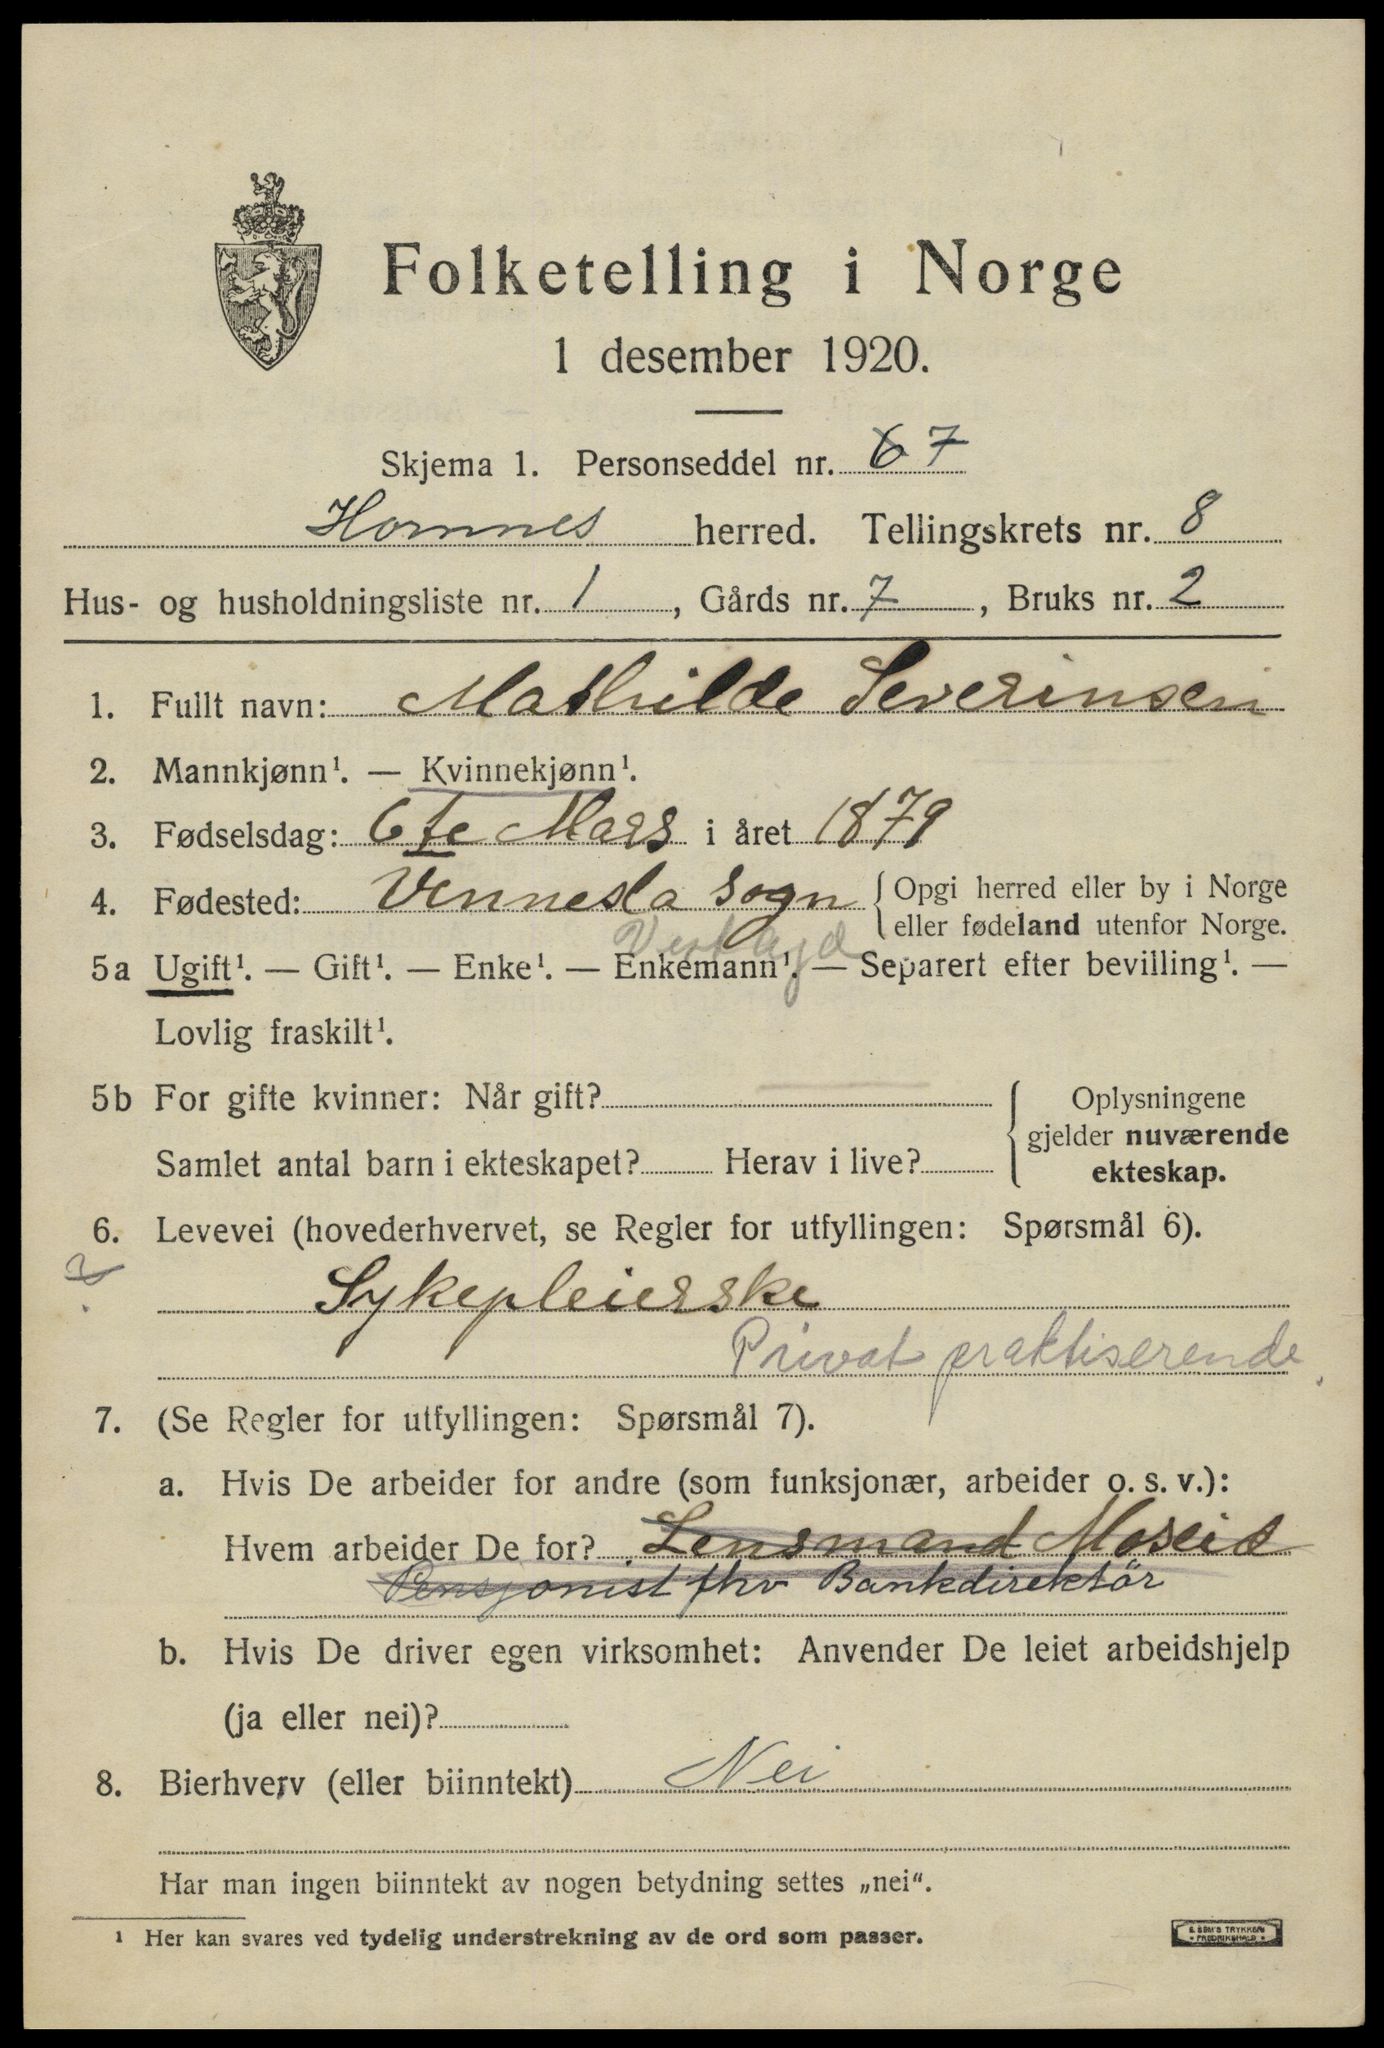 Folketelling i Norge
1 desember 1920.
Skjema 1. Personseddel nr. 6 7
Hornnes herred. Tellingskrets nr. 8
Hus- og husholdningsliste nr. 1, Gårds nr. 7, Bruks nr. 2
1. Fullt navn: Mathilde Severinsen
2. Mannkjønn¹. — Kvinnekjønn¹.
3. Fødselsdag: 6te Mars i året 1879
4. Fødested: Vennesla sogn { Opgi herred eller by i Norge
eller fødeland utenfor Norge.
Vest Agd
5a Ugift¹. — Gift¹. — Enke¹. — Enkemann¹. — Separert efter bevilling¹. —
Lovlig fraskilt¹.
5b For gifte kvinner: Når gift? { Oplysningene
gjelder nuværende
Samlet antal barn i ekteskapet? Herav i live?
ekteskap.
6. Levevei (hovederhvervet, se Regler for utfyllingen: Spørsmål 6).
Sykepleierske
Privat praktiserende
7. (Se Regler for utfyllingen: Spørsmål 7).
a. Hvis De arbeider for andre (som funksjonær, arbeider o. s. v.):
Hvem arbeider De for? Lensmand Moseid
Pensjonist fhv Bankdirektør
b. Hvis De driver egen virksomhet: Anvender De leiet arbeidshjelp
(ja eller nei)?
8. Bierhverv (eller biinntekt) Nei
Har man ingen biinntekt av nogen betydning settes „nei“.
¹ Her kan svares ved tydelig understrekning av de ord som passer.
E. SEM'S TRYKKERI
* FREDRIKSHALD *